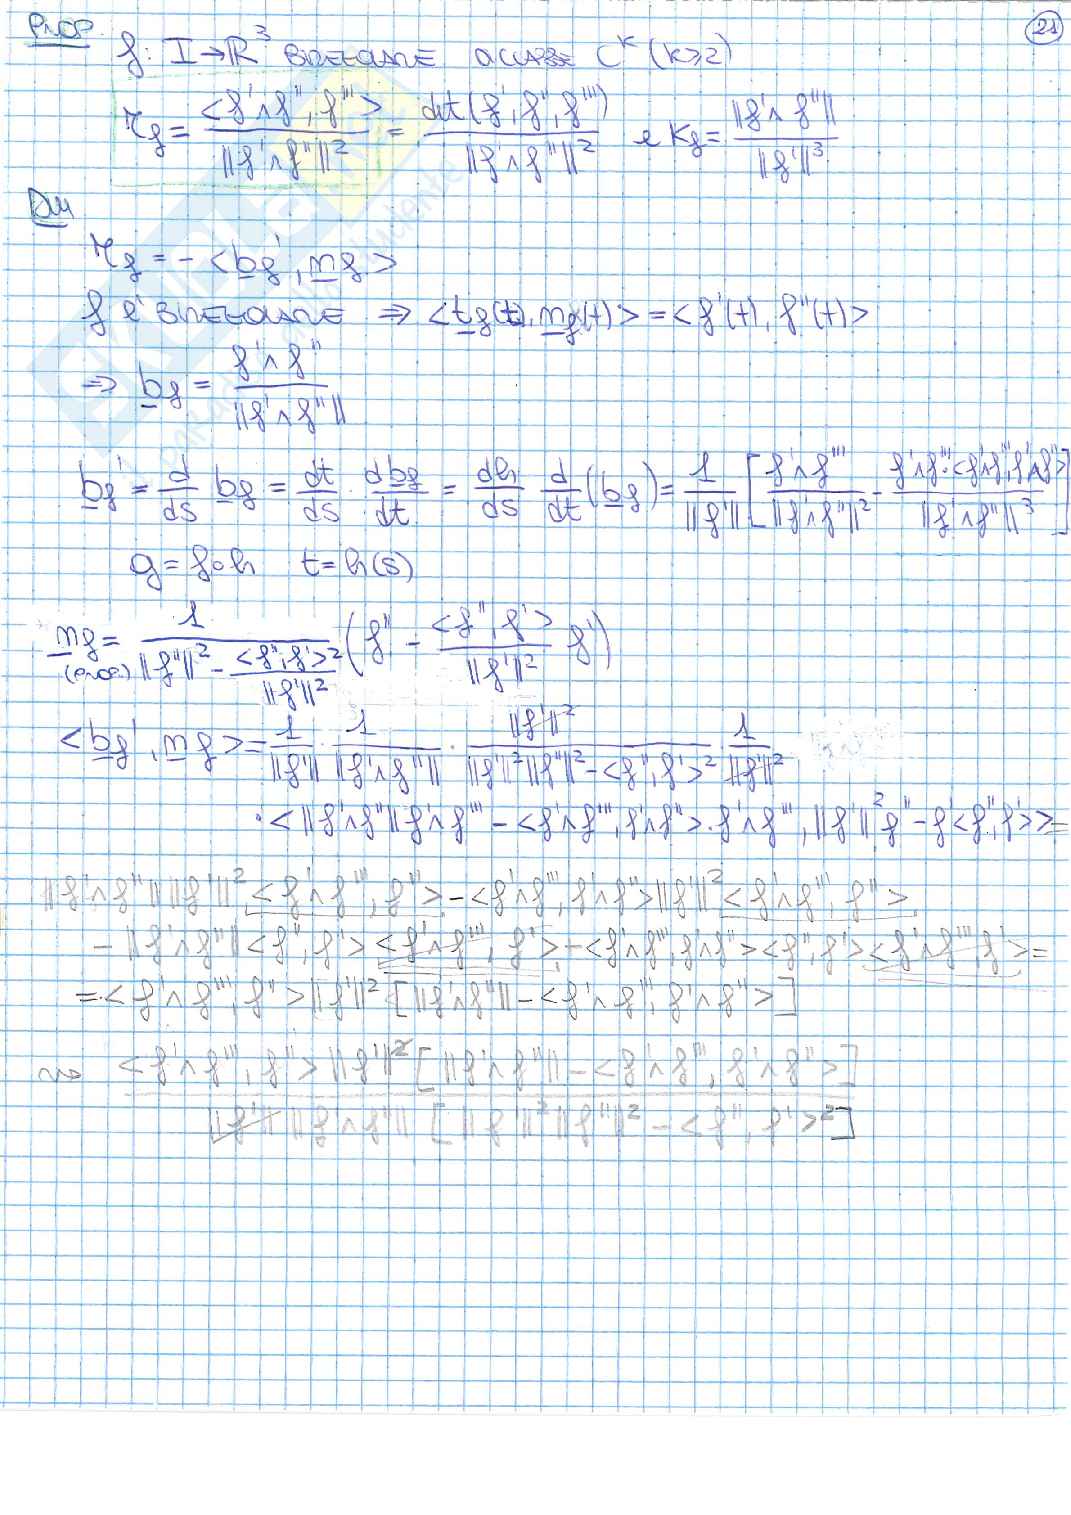 Prop.
21
f: I → ℝ³ BIREGOLARE DI CLASSE C^k (k≥2)
τ_f = <f'∧f'', f'''> / ||f'∧f''||² = det(f', f'', f''') / ||f'∧f''||² e K_f = ||f'∧f''|| / ||f'||³
Dim
τ_f = - <b_f', n_f>
f è BIREGOLARE ⇒ <t_f(t), n_f(t)> = <f'(t), f''(t)>
⇒ b_f = f'∧f'' / ||f'∧f''||
b_f' = d/ds b_f = dt/ds · db_f/dt = dh/ds d/dt (b_f) = 1/||f'|| [ f'∧f''' / ||f'∧f''||² - f'∧f''·<f'∧f''', f'∧f''> / ||f'∧f''||³ ]
g = f∘h t = h(s)
n_f = 1 / (||f''||² - <f'', f'>² / ||f'||²) ( f'' - <f'', f'> / ||f'||² f' )
(prop.)
<b_f', n_f> = 1/||f'|| · 1/||f'∧f''|| · ||f'||² / (||f'||² ||f''||² - <f'', f'>²) · 1/||f'||²
· < ||f'∧f''|| f'∧f''' - <f'∧f''', f'∧f''> · f'∧f''', ||f'||² f'' - f' <f'', f'> > =
||f'∧f''|| ||f'||² <f'∧f''', f''> - <f'∧f''', f'∧f''> ||f'||² <f'∧f''', f''>
- ||f'∧f''|| <f'', f'> <f'∧f''', f'> - <f'∧f''', f'∧f''> <f'', f'> <f'∧f''', f'> =
= <f'∧f''', f''> ||f'||² [ ||f'∧f''|| - <f'∧f''', f'∧f''> ]
⇝ <f'∧f''', f''> ||f'||² [ ||f'∧f''|| - <f'∧f''', f'∧f''> ] / ||f'|| ||f'∧f''|| [ ||f'||² ||f''||² - <f'', f'>² ]